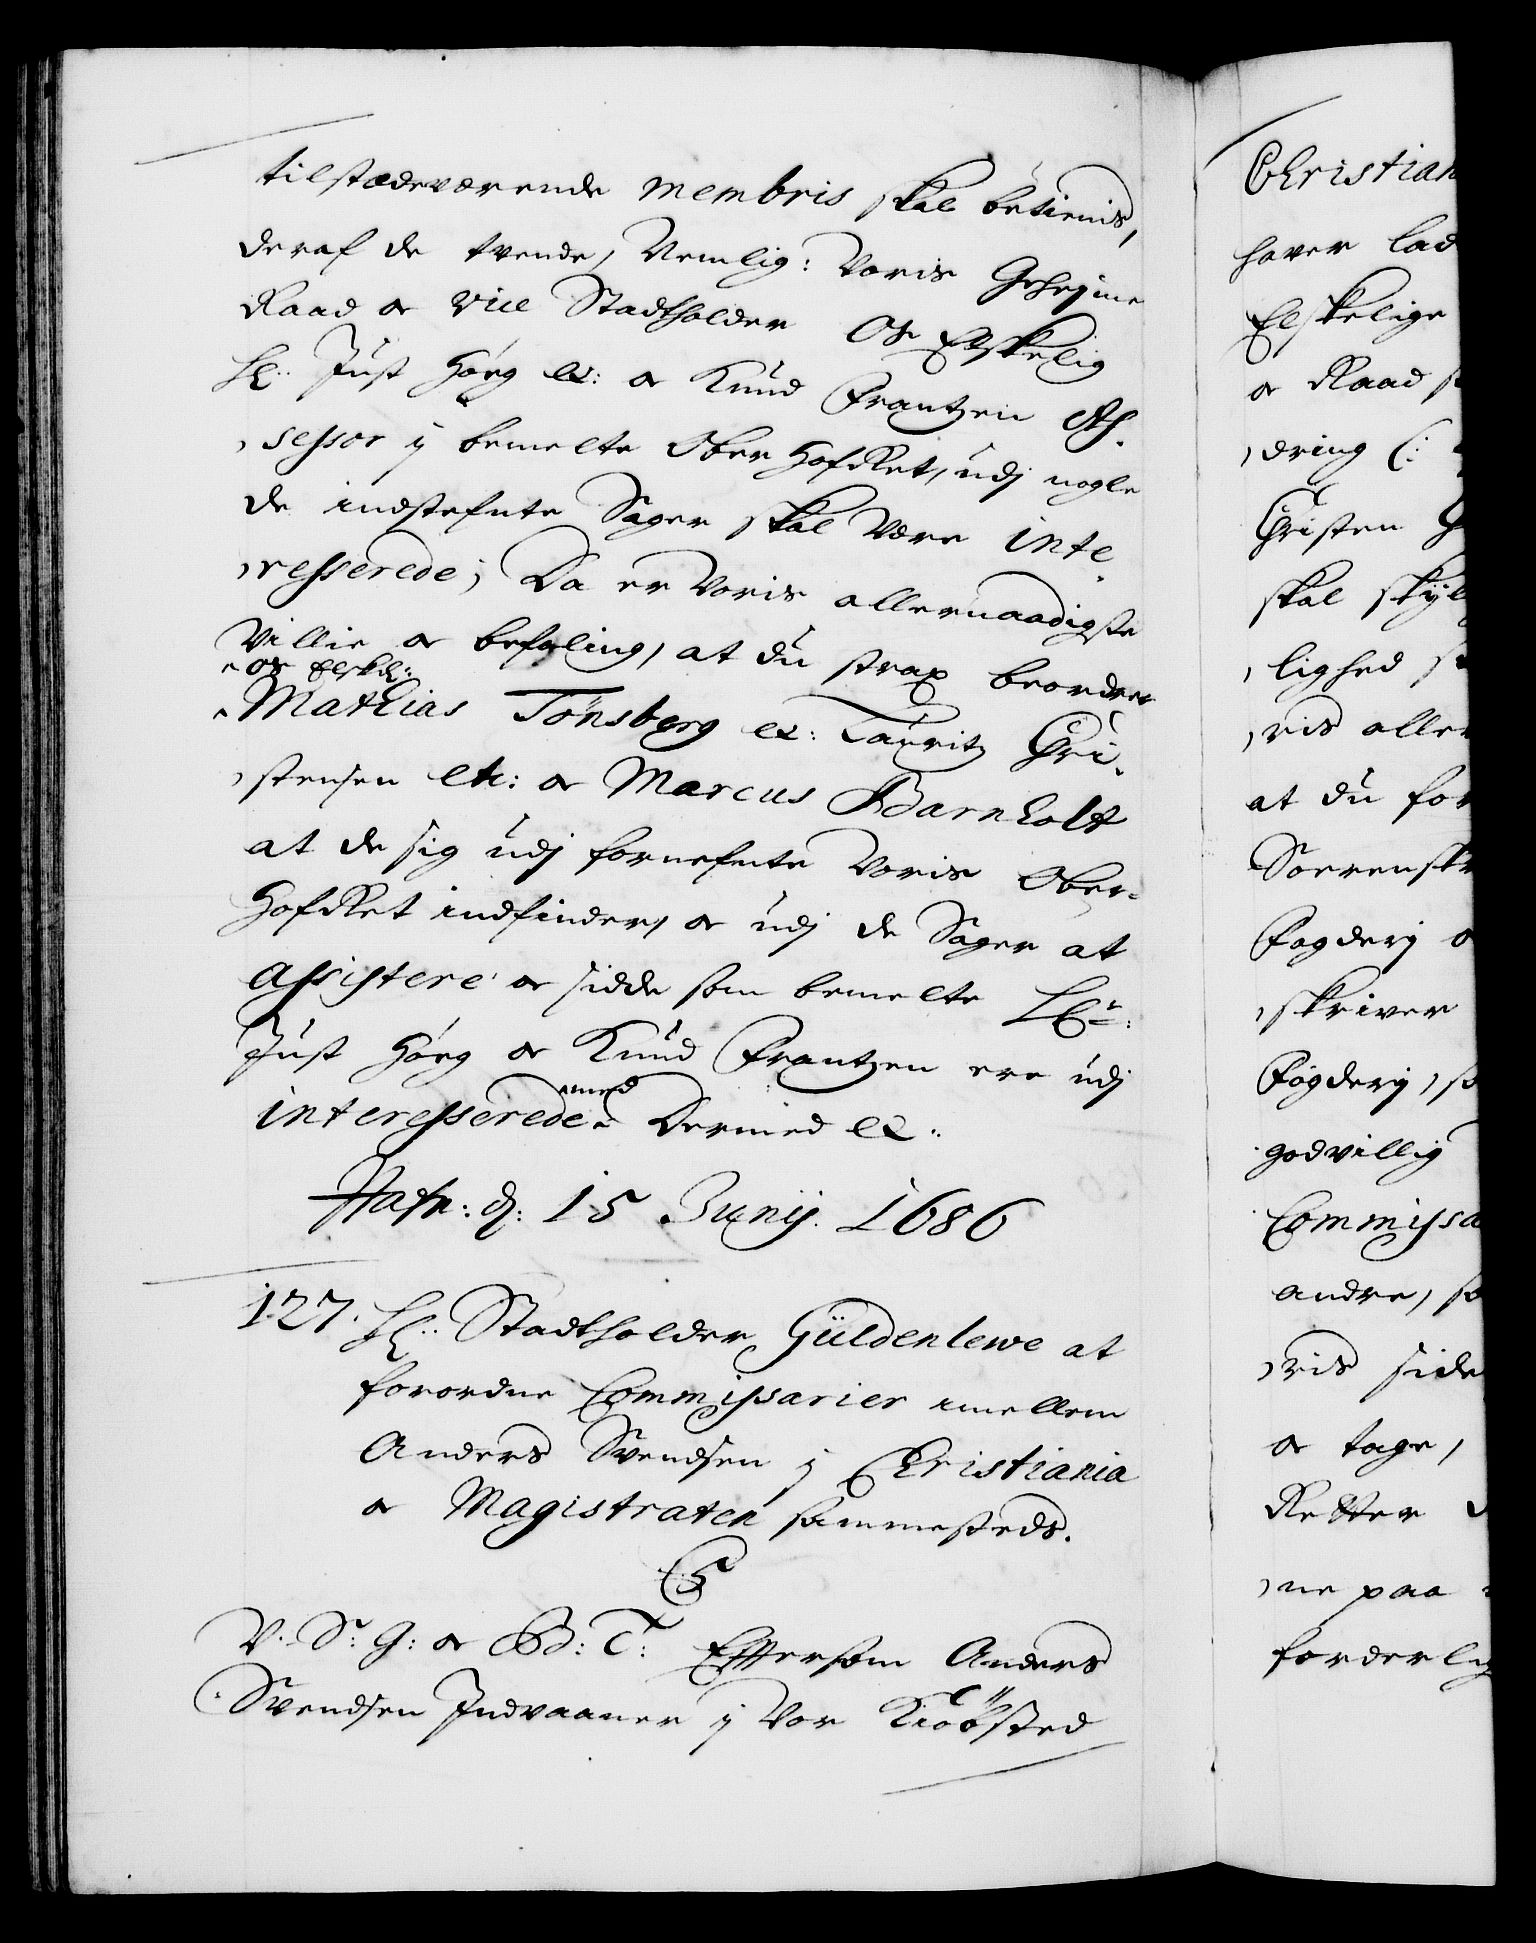 tilstædeværende membris skal betienis,
deraf de tvende, Nemlig: Voris Geheyme
Raad oc Vice Stadtholder Os Elskelig
Hl: Just Høeg etc: oc Knud Frantzen As-
sessor ÿ bemelte Ober Hofret, udj nogle
de indstefnte Sager skal være inte-
resserede; Da er Voris allernaadigste
Villie oc befaling, at du strax beordrer
os Elskel:
Mathias Tönsberg etc: Lauritz Chri-
stensen etc: oc Marcus Barnholt
at de sig udj fornefnte Voris Ober-
Hofret indfinder, oc udj de Sager at
assistere oc sidde som bemelte Hr:
Just Høeg oc Knud Frantzen ere udj
med
interesserede. Dermed etc:
Hafn: d: 15 Junÿ. 1686
127. Hl: Stadtholder Güldenlewe at
forordne Commissarier imellem
Anders Svendsen ÿ Christiania
oc Magistraten sammesteds.
C5
V. S: G: oc B: T: Eftersom Anders
Svendsen Indvaaner ÿ Vor Kiöbsted
Christian
hafver lad
Elskelige
oc Raad
dring
Christen
skal skÿl
lighed
ris aller
at du for
Sorenskr
Fogderj o
skriver
Fogderj, so
godvillig
Commissa
andre, so
ris side
oc tage,
Retter
ne paa
forderlig